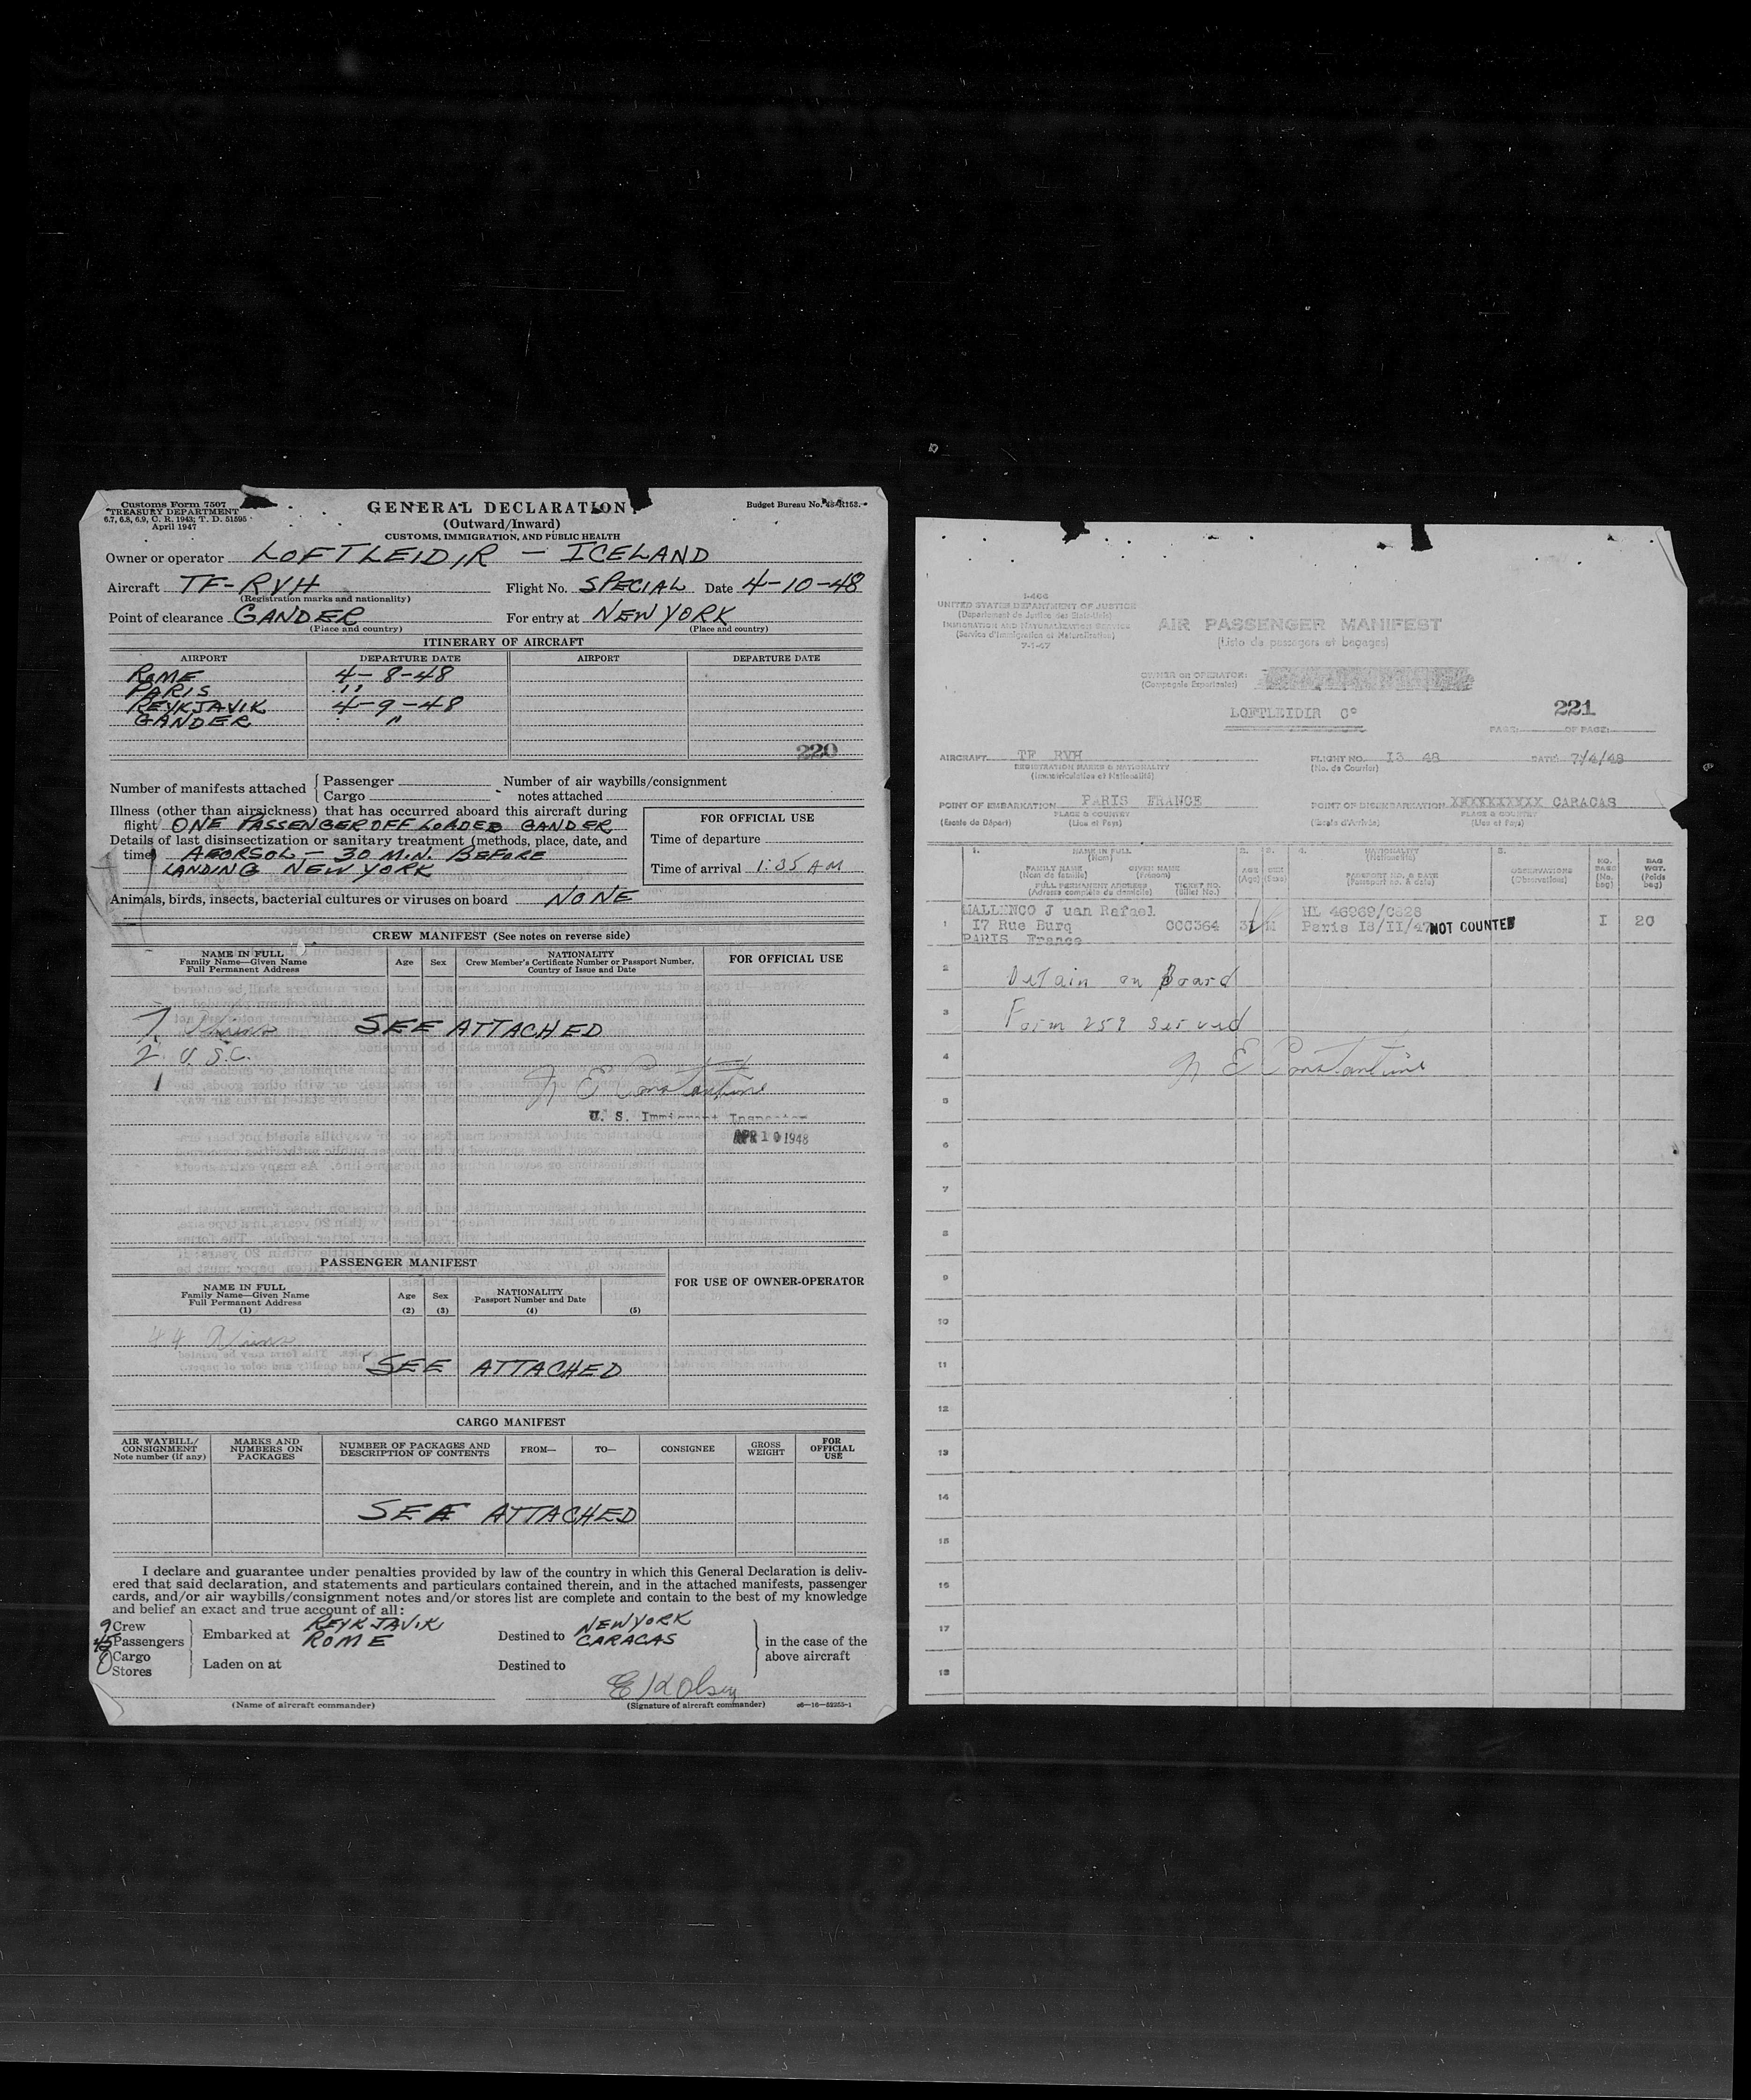 Customs Form 7507
TREASURY DEPARTMENT
6.7, 6.8, 6.9, C. R. 1943; T. D. 51595
April 1947
GENERAL DECLARATION
(Outward/Inward)
CUSTOMS, IMMIGRATION, AND PUBLIC HEALTH
Budget Bureau No. 48-R153.
Owner or operator LOFTLEIDIR - ICELAND
Aircraft TF-RVH Flight No. SPECIAL Date 4-10-48
(Registration marks and nationality)
Point of clearance GANDER For entry at NEW YORK
(Place and country) (Place and country)
ITINERARY OF AIRCRAFT
AIRPORT DEPARTURE DATE AIRPORT DEPARTURE DATE
ROME 4-8-48
PARIS "
REYKJAVIK 4-9-48
GANDER "
220
Number of manifests attached { Passenger
Cargo
Number of air waybills/consignment
notes attached
Illness (other than airsickness) that has occurred aboard this aircraft during
flight ONE PASSENGER OFF LOADED GANDER
Details of last disinsectization or sanitary treatment (methods, place, date, and
time) AEORSOL - 30 MIN. BEFORE
LANDING NEW YORK
FOR OFFICIAL USE
Time of departure
Time of arrival 1:35 AM
Animals, birds, insects, bacterial cultures or viruses on board NONE
CREW MANIFEST (See notes on reverse side)
NAME IN FULL
Family Name—Given Name
Full Permanent Address
Age Sex
NATIONALITY
Crew Member's Certificate Number or Passport Number,
Country of Issue and Date
FOR OFFICIAL USE
7 Aliens SEE ATTACHED
2 U.S.C.
1
N E Constantine
U. S. Immigrant Inspector
APR 10 1948
PASSENGER MANIFEST
NAME IN FULL
Family Name—Given Name
Full Permanent Address
(1)
Age
(2)
Sex
(3)
NATIONALITY
Passport Number and Date
(4) (5)
FOR USE OF OWNER-OPERATOR
44 Aliens
SEE ATTACHED
CARGO MANIFEST
AIR WAYBILL/
CONSIGNMENT
Note number (if any)
MARKS AND
NUMBERS ON
PACKAGES
NUMBER OF PACKAGES AND
DESCRIPTION OF CONTENTS
FROM— TO— CONSIGNEE
GROSS
WEIGHT
FOR
OFFICIAL
USE
SEE ATTACHED
I declare and guarantee under penalties provided by law of the country in which this General Declaration is deliv-
ered that said declaration, and statements and particulars contained therein, and in the attached manifests, passenger
cards, and/or air waybills/consignment notes and/or stores list are complete and contain to the best of my knowledge
and belief an exact and true account of all:
9 Crew
45 Passengers
0 Cargo
Stores
Embarked at REYKJAVIK
ROME
Laden on at
Destined to NEWYORK
CARACAS
Destined to
in the case of the
above aircraft
E K Olsen
(Name of aircraft commander) (Signature of aircraft commander) 16—52255-1
I-466
UNITED STATES DEPARTMENT OF JUSTICE
(Departement de Justice des Etats-Unis)
IMMIGRATION AND NATURALIZATION SERVICE
(Service d'Immigration et Naturalisation)
7-1-47
AIR PASSENGER MANIFEST
(Liste de passagers et bagages)
OWNER OR OPERATOR:
(Compagnie Exportatee)
LOFTLEIDIR C°
221
PAGE: OF PAGE:
AIRCRAFT TF RVH FLIGHT NO. I3 48 DATE: 7/4/48
REGISTRATION MARKS & NATIONALITY
(Immatriculation et Nationalité)
(No. de Courrier)
POINT OF EMBARKATION PARIS FRANCE POINT OF DISEMBARKATION XXXXXXXXXX CARACAS
(Escale de Départ) PLACE & COUNTRY
(Lieu et Pays)
(Escale d'Arrivée) PLACE & COUNTRY
(Lieu et Pays)
1. NAME IN FULL
(Nom)
FAMILY NAME GIVEN NAME
(Nom de famille) (Prénom)
FULL PERMANENT ADDRESS TICKET NO.
(Adresse complète de domicile) (Billet No.)
2. AGE
(Age)
3. SEX
(Sexe)
4. NATIONALITY
(Nationalité)
PASSPORT NO. & DATE
(Passeport no. & date)
5. OBSERVATIONS
(Observations)
NO. BAGS
(No. bag)
BAG WGT.
(Poids bag)
1 MALLENCO J uan Rafael HL 46969/C828
17 Rue Burq CCC364 M Paris I8/II/47 NOT COUNTED I 20
PARIS France
2 Detain on Board
3 Form 259 served
4 N E Constantine
5
6
7
8
9
10
11
12
13
14
15
16
17
18